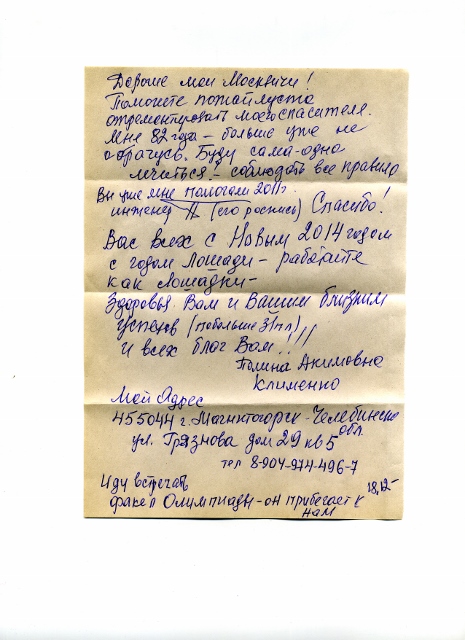 Дорогие мои Москвичи!
Помогите пожайлуста
отремонтировать моего спасителя.
Мне 82 года – больше уже не
обращусь. Буду сама-одна
лечиться – соблюдать все правила
Вы уже мне помогали 2011г.
инженер (его роспись) Спасибо!
Вас всех с Новым 2014 годом
с годом Лошади – работайте
как лошадки –
Здоровья Вам и Вашим близким
Успехов (побольше З/пл)
и всех благ Вам!!!
Полина Акимовна
Клименко
Мой Адрес
455044 г. Магнитогорск – Челябинско
обл.
ул. Грязнова дом 29 кв 5
тел 8-904-974-496-7
Иду встречать 18,12-
факел Олимпиады – он прибегает к
нам